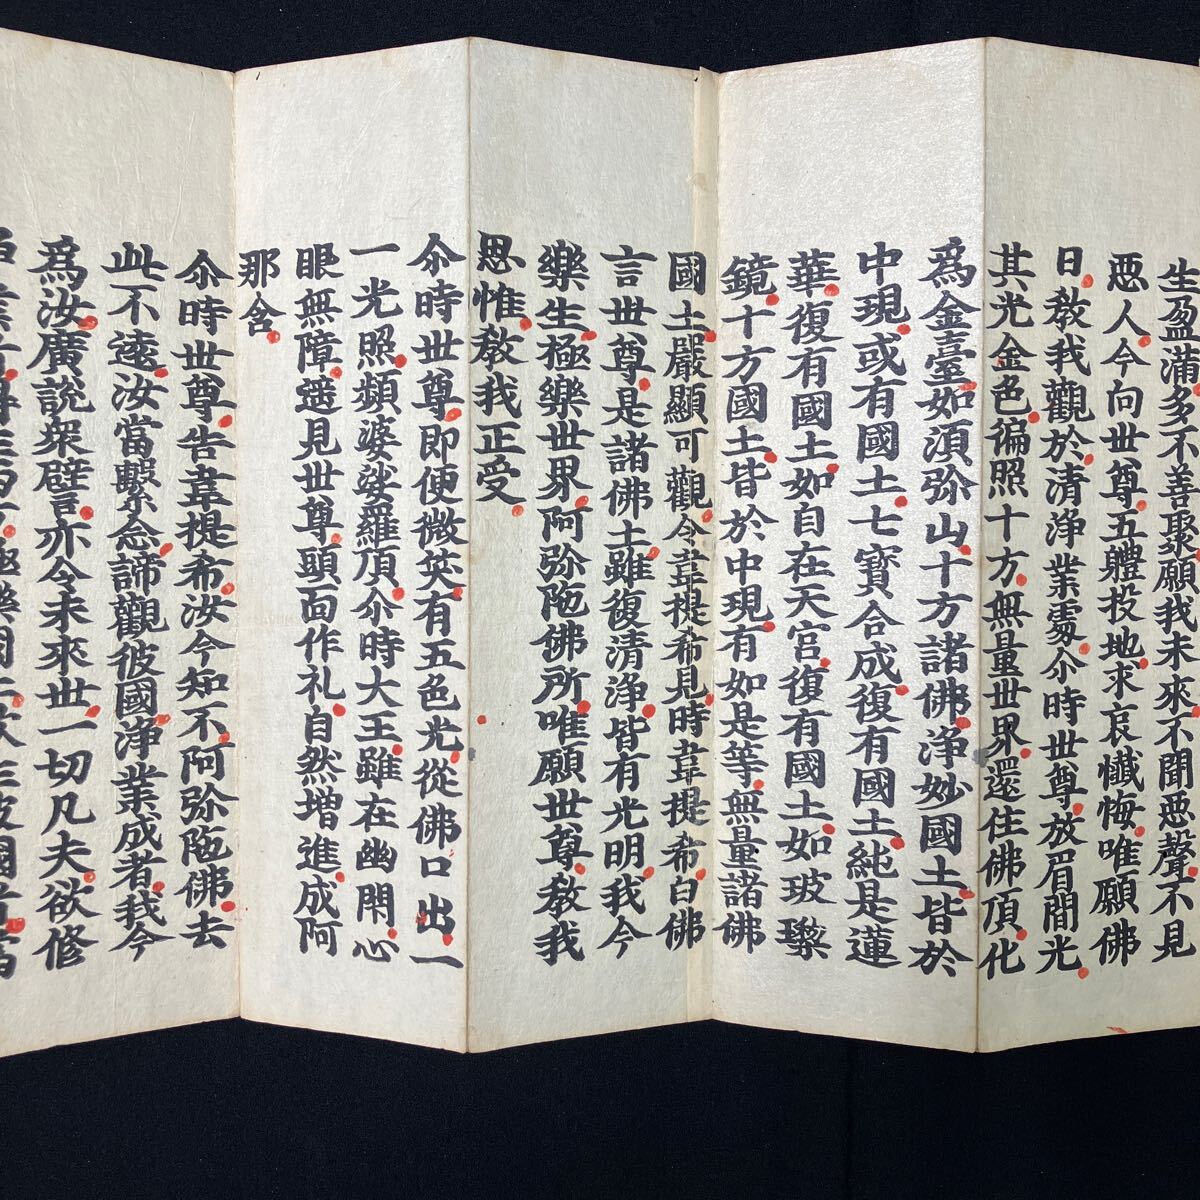 生盈満多不善聚願我未来不聞惡聲不見
惡人今向世尊五體投地求哀懺悔唯願佛
日教我觀於清浄業處尒時世尊放眉間光
其光金色徧照十方無量世界還住佛頂化
爲金臺如湏弥山十方諸佛浄妙國土皆於
中現或有國土七寶合成復有國土純是蓮
華復有國土如自在天宮復有國土如玻瓈
鏡十方國土皆於中現有如是等無量諸佛
國土嚴顯可觀令韋提希見時韋提希白佛
言世尊是諸佛土雖復清浄皆有光明我今
樂生極樂世界阿弥陁佛所唯願世尊教我
思惟教我正受
尒時世尊即便微笑有五色光從佛口出一
一光照頻婆娑羅頂尒時大王雖在幽閑心
眼無障遥見世尊頭面作礼自然増進成阿
那含
尒時世尊告韋提希汝今知不阿弥陁佛去
此不遠汝當繫念諦觀彼國浄業成者我今
爲汝廣説衆譬亦令未來世一切凡夫欲修